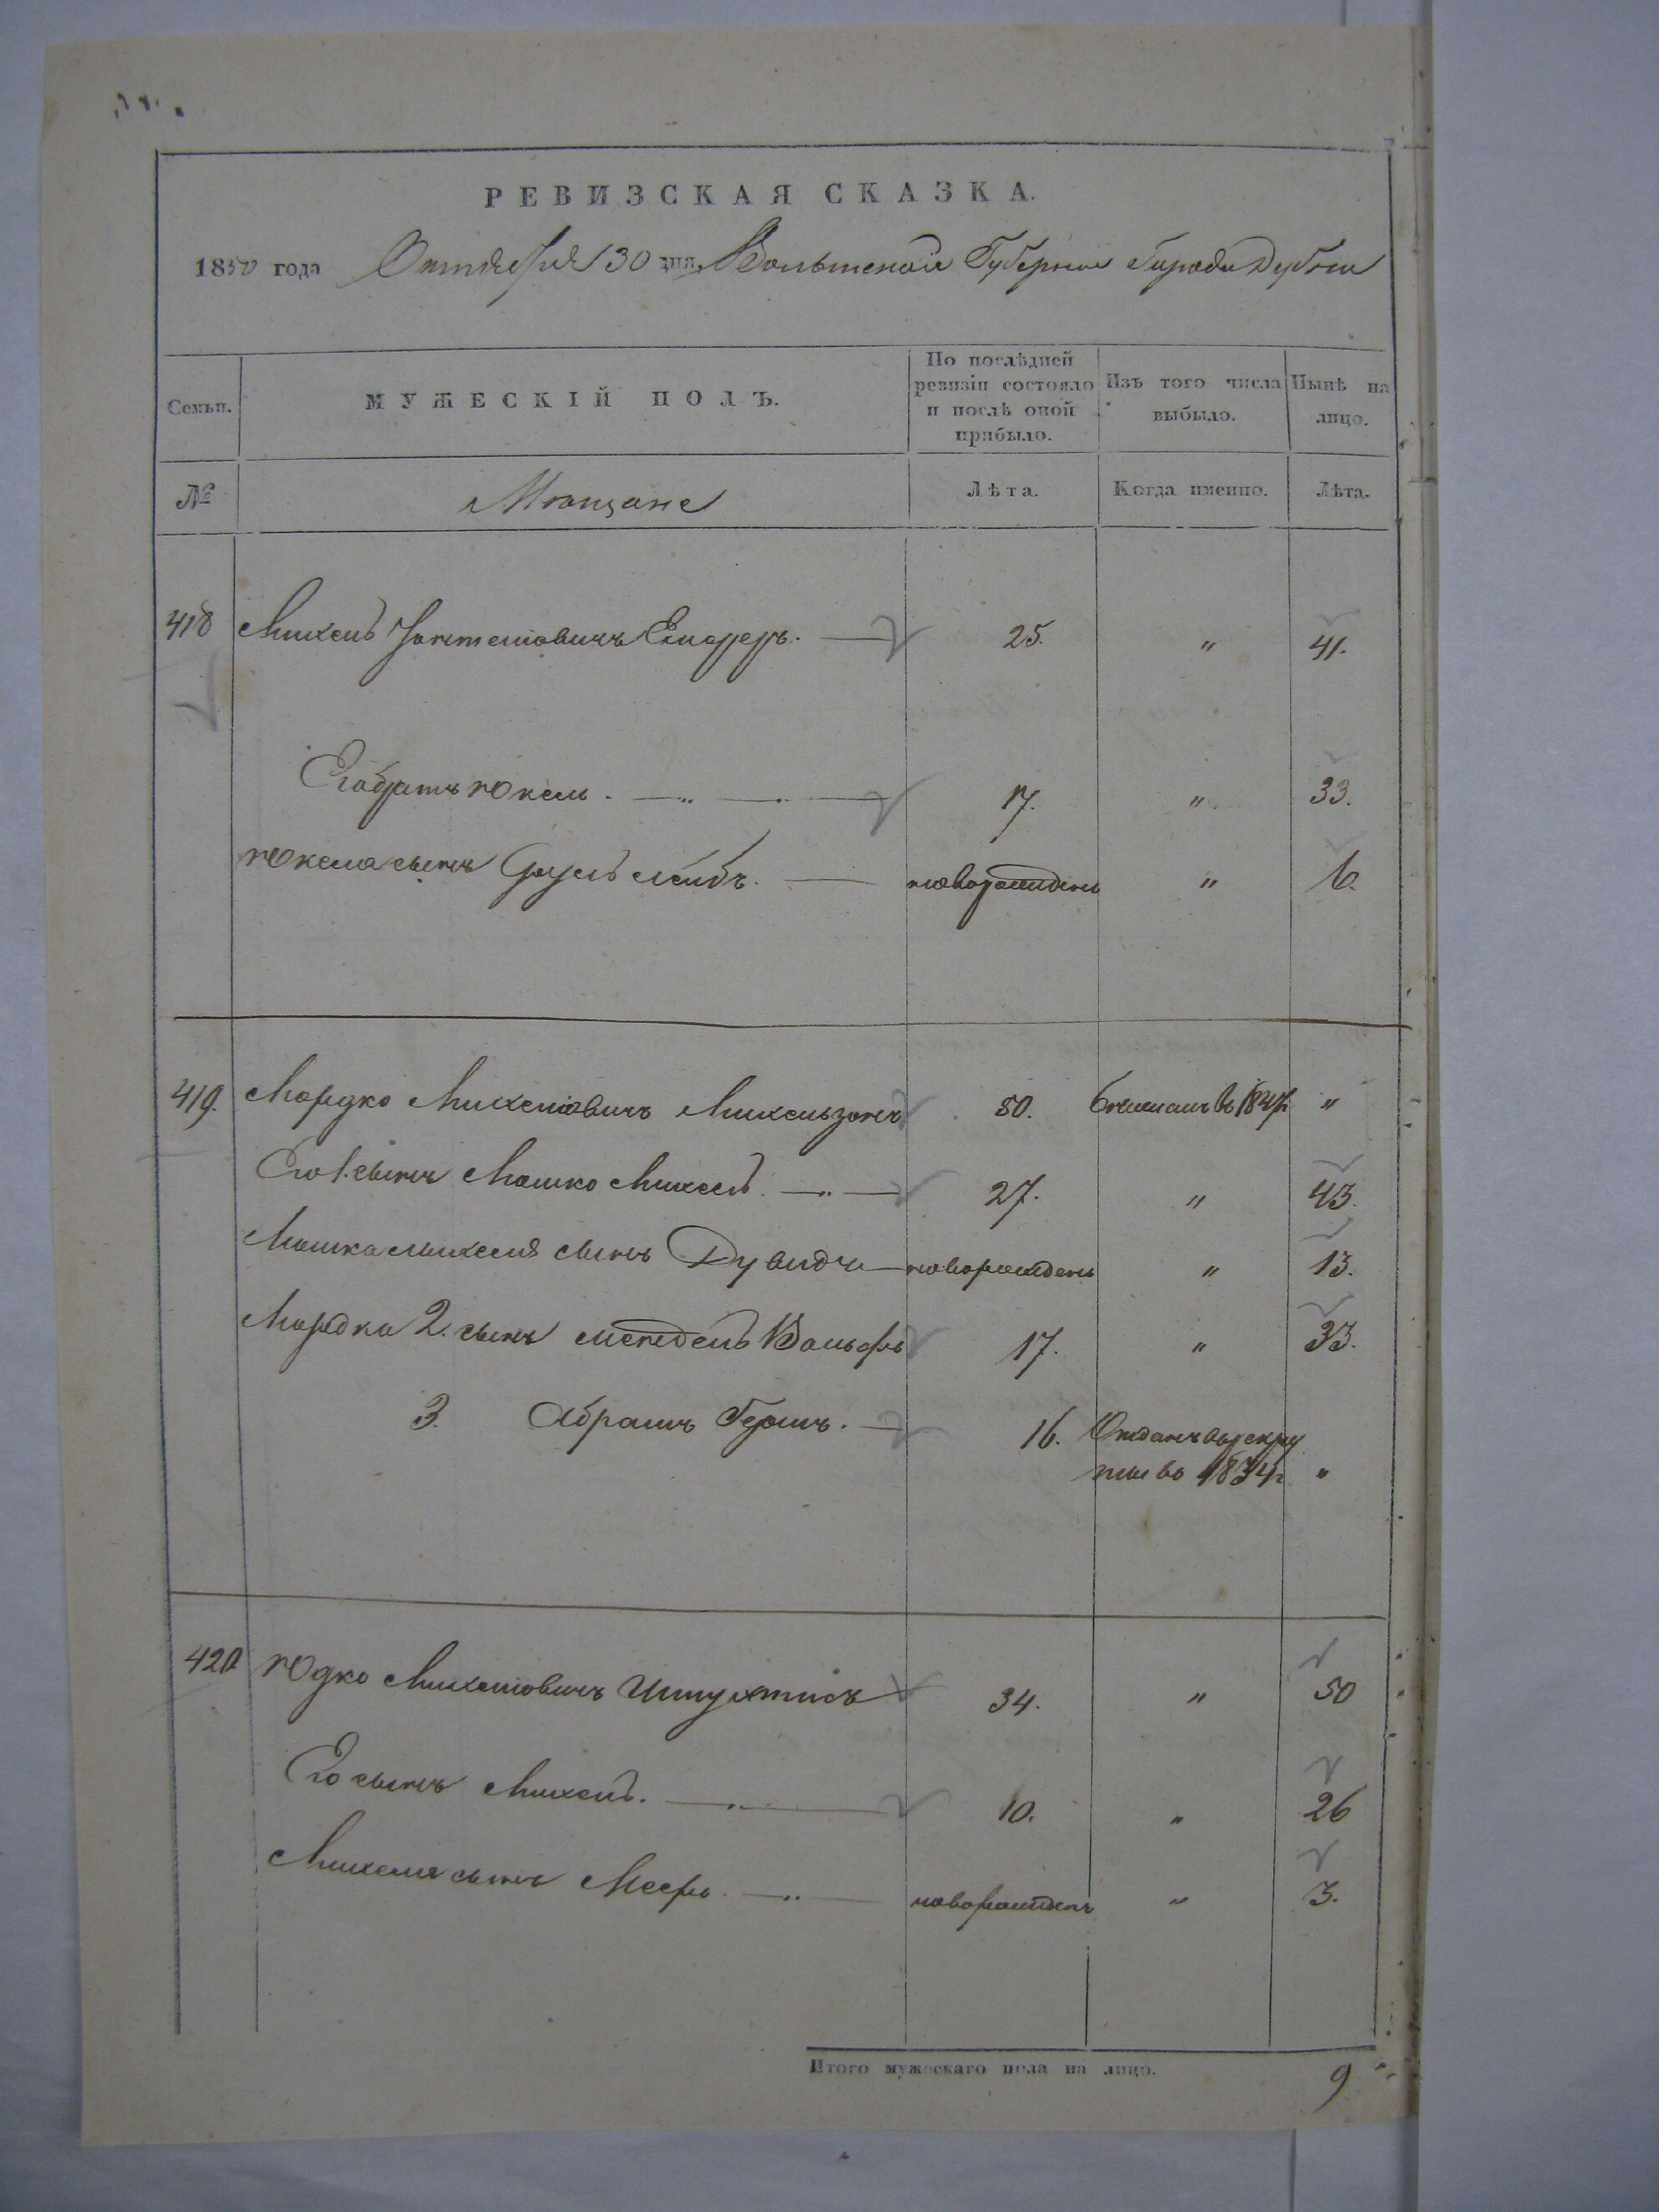 РЕВИЗСКАЯ СКАЗКА.
1850 года Октября 30 дня, Волынской Губернии Города Дубна
Семьи. МУЖЕСКІЙ ПОЛЪ. По послѣдней ревизіи состояло и послѣ оной прибыло. Изъ того числа выбыло. Нынѣ на лицо.
№ Мѣщане Лѣта. Когда именно. Лѣта.
418 Михель 25. " 41.
Его братъ Юкель. 17. " 33.
Юкеля сынъ Сруль Лейбъ. новорожденъ " 6.
419. Мордко Михелiовичъ Михельзонъ 50. въ 184 "
Его 1. сынъ Мошко Михель. 27. " 43.
Мошка Михеля сынъ Дувидъ новорожденъ " 13.
Мордка 2. сынъ Мендель Вольфъ 17. " 33.
3. Абрамъ Гершъ. 16. Отданъ въ рекру
ты въ 1834 г "
420 Юдко Михелiовичъ 34. " 50
Его сынъ Михель. 10. " 26
Михеля сынъ Мееръ. новорожденъ " 3.
Итого мужескаго пола на лицо. 9